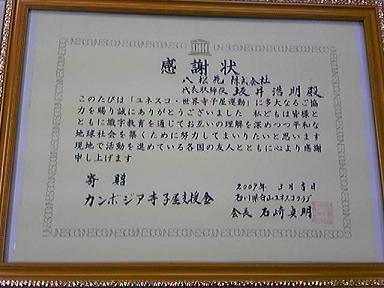 感謝状
八松苑 株式会社
代表取締役 坂井浩明殿
このたびは「ユネスコ・世界寺子屋運動」に多大なるご協
力を賜り誠にありがとうございました 私どもは皆様と
ともに識字教育を通じてお互いの理解を深めつつ平和な
地球社会を築くために努力してまいりたいと思います
現地で活動を進めている各国の友人とともに心より感謝
申し上げます
寄贈
カンボジア寺子屋支援金
2009年 3月吉日
石川県白山ユネスコクラブ
会長 石﨑貞明